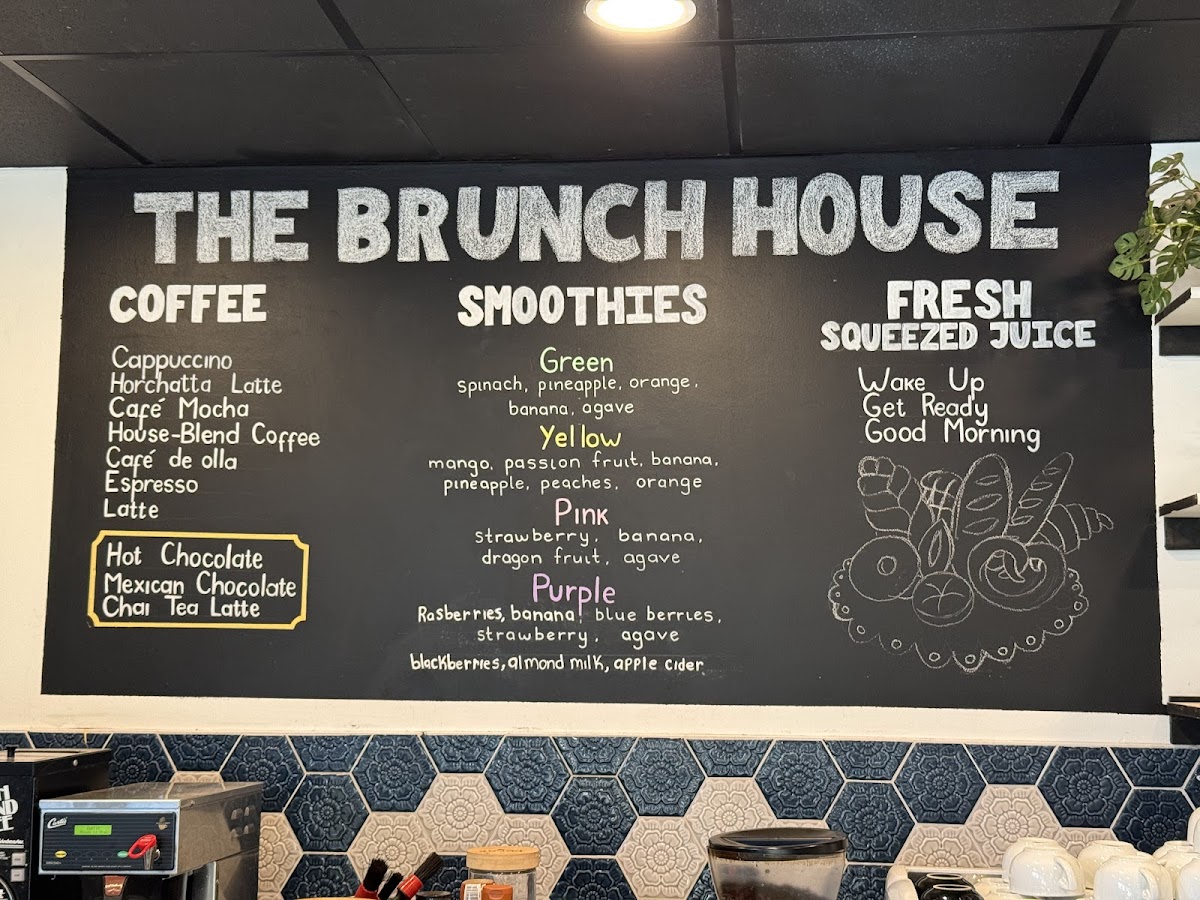 THE BRUNCH HOUSE
COFFEE
Cappuccino
Horchatta Latte
Café Mocha
House-Blend Coffee
Café de olla
Espresso
Latte
Hot Chocolate
Mexican Chocolate
Chai Tea Latte
SMOOTHIES
Green
spinach, pineapple, orange,
banana, agave
Yellow
mango, passion fruit, banana,
pineapple, peaches, orange
Pink
strawberry, banana,
dragon fruit, agave
Purple
Rasberries, banana, blue berries,
strawberry, agave
blackberries, almond milk, apple cider
FRESH
SQUEEZED JUICE
Wake Up
Get Ready
Good Morning
Curtis